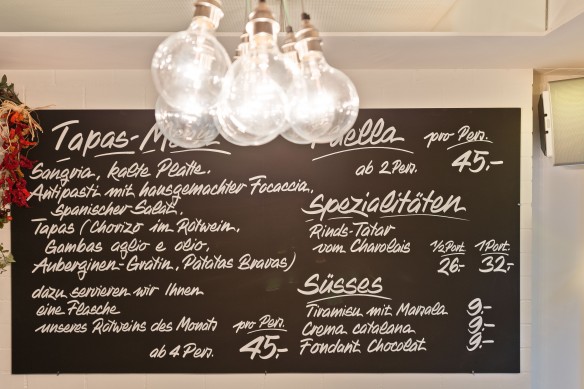 Tapas-M
Sangria, kalte Platte,
Antipasti mit hausgemachter Focaccia,
spanischer Salat,
Tapas (Chorizo im Rotwein,
Gambas aglio e olio,
Auberginen-Gratin, Patatas Bravas)
dazu servieren wir Ihnen
eine Flasche
unseres Rotweins des Monats
pro Pers.
ab 4 Pers. 45,-
Paella pro Pers.
ab 2 Pers. 45,-
Spezialitäten
Rinds-Tatar
vom Charolais ½ Port. 1 Port.
26.- 32.-
Süsses
Tiramisu mit Marsala 9.-
Crema catalana 9.-
Fondant Chocolat 9.-